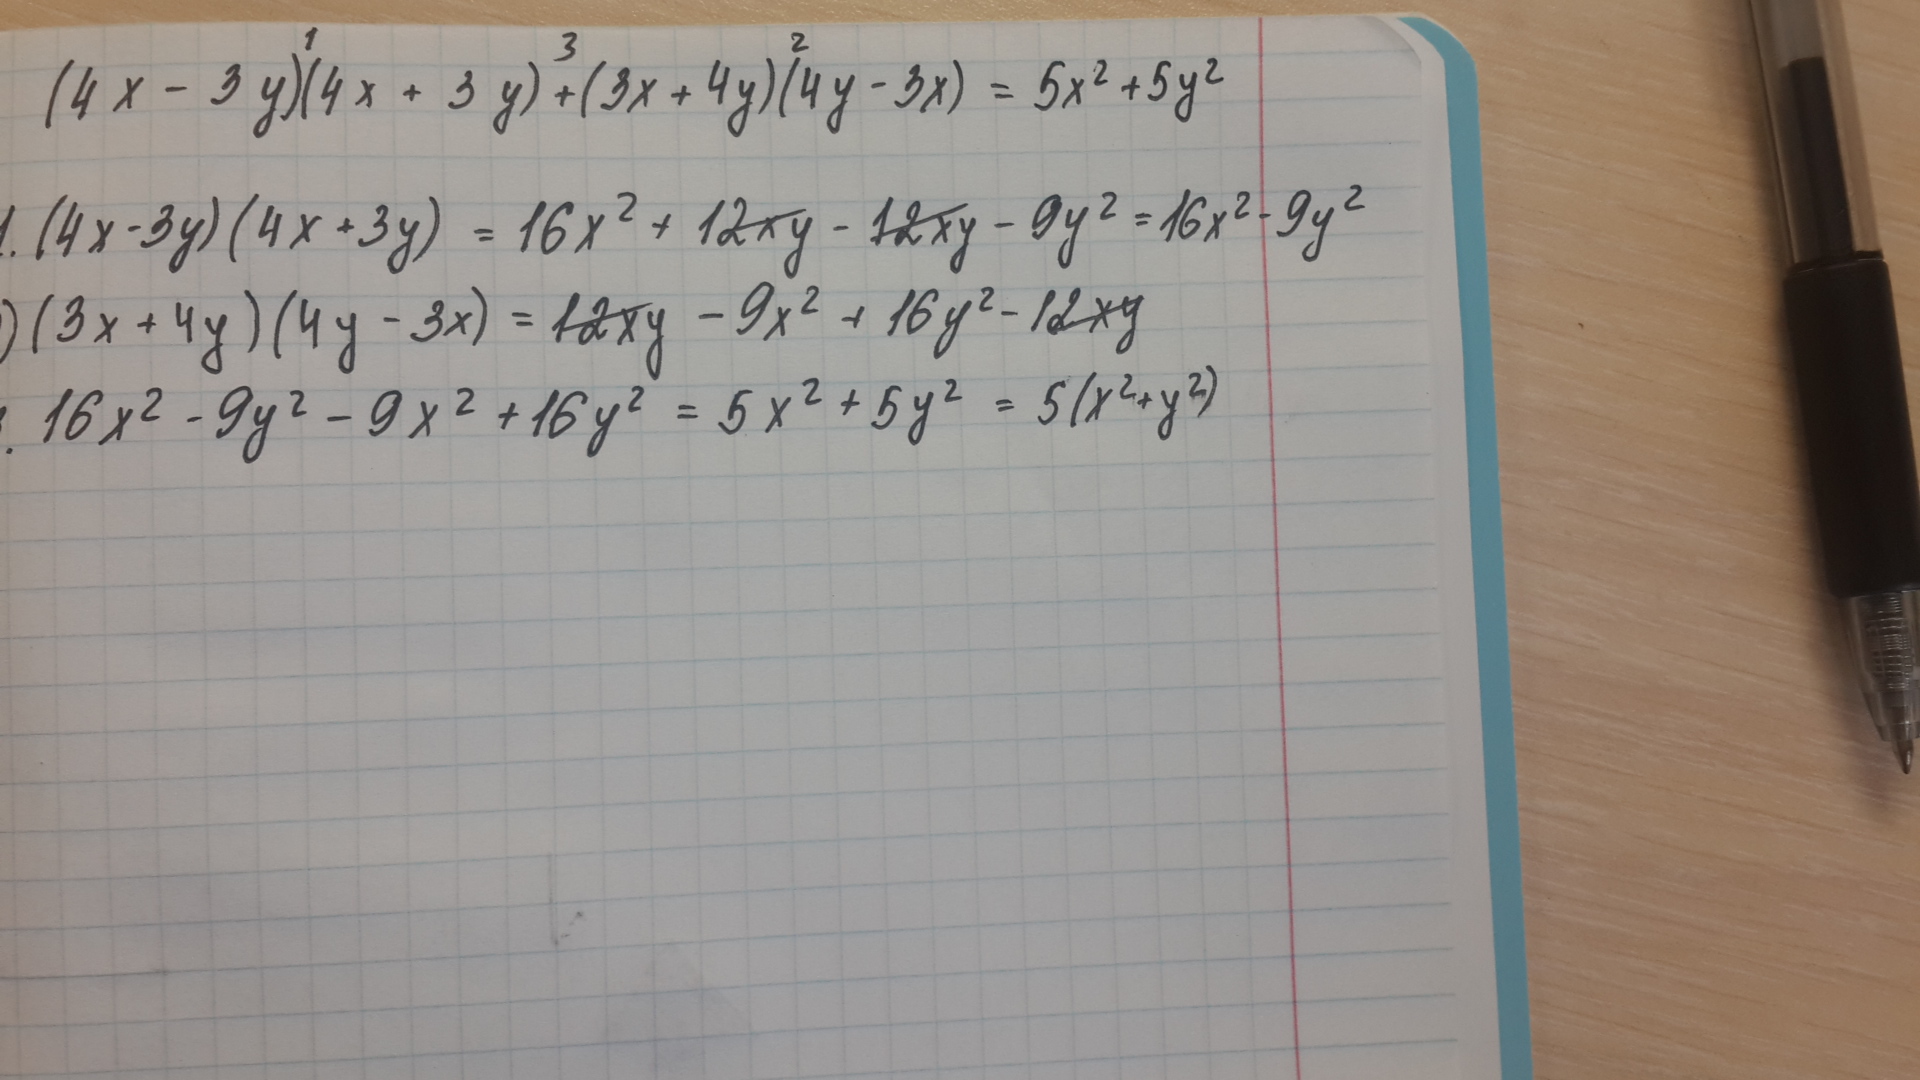 1 3 2
(4x - 3y)(4x + 3y) + (3x + 4y)(4y - 3x) = 5x² + 5y²
1. (4x - 3y)(4x + 3y) = 16x² + 12xy - 12xy - 9y² = 16x² - 9y²
) (3x + 4y)(4y - 3x) = 12xy - 9x² + 16y² - 12xy
. 16x² - 9y² - 9x² + 16y² = 5x² + 5y² = 5(x² + y²)